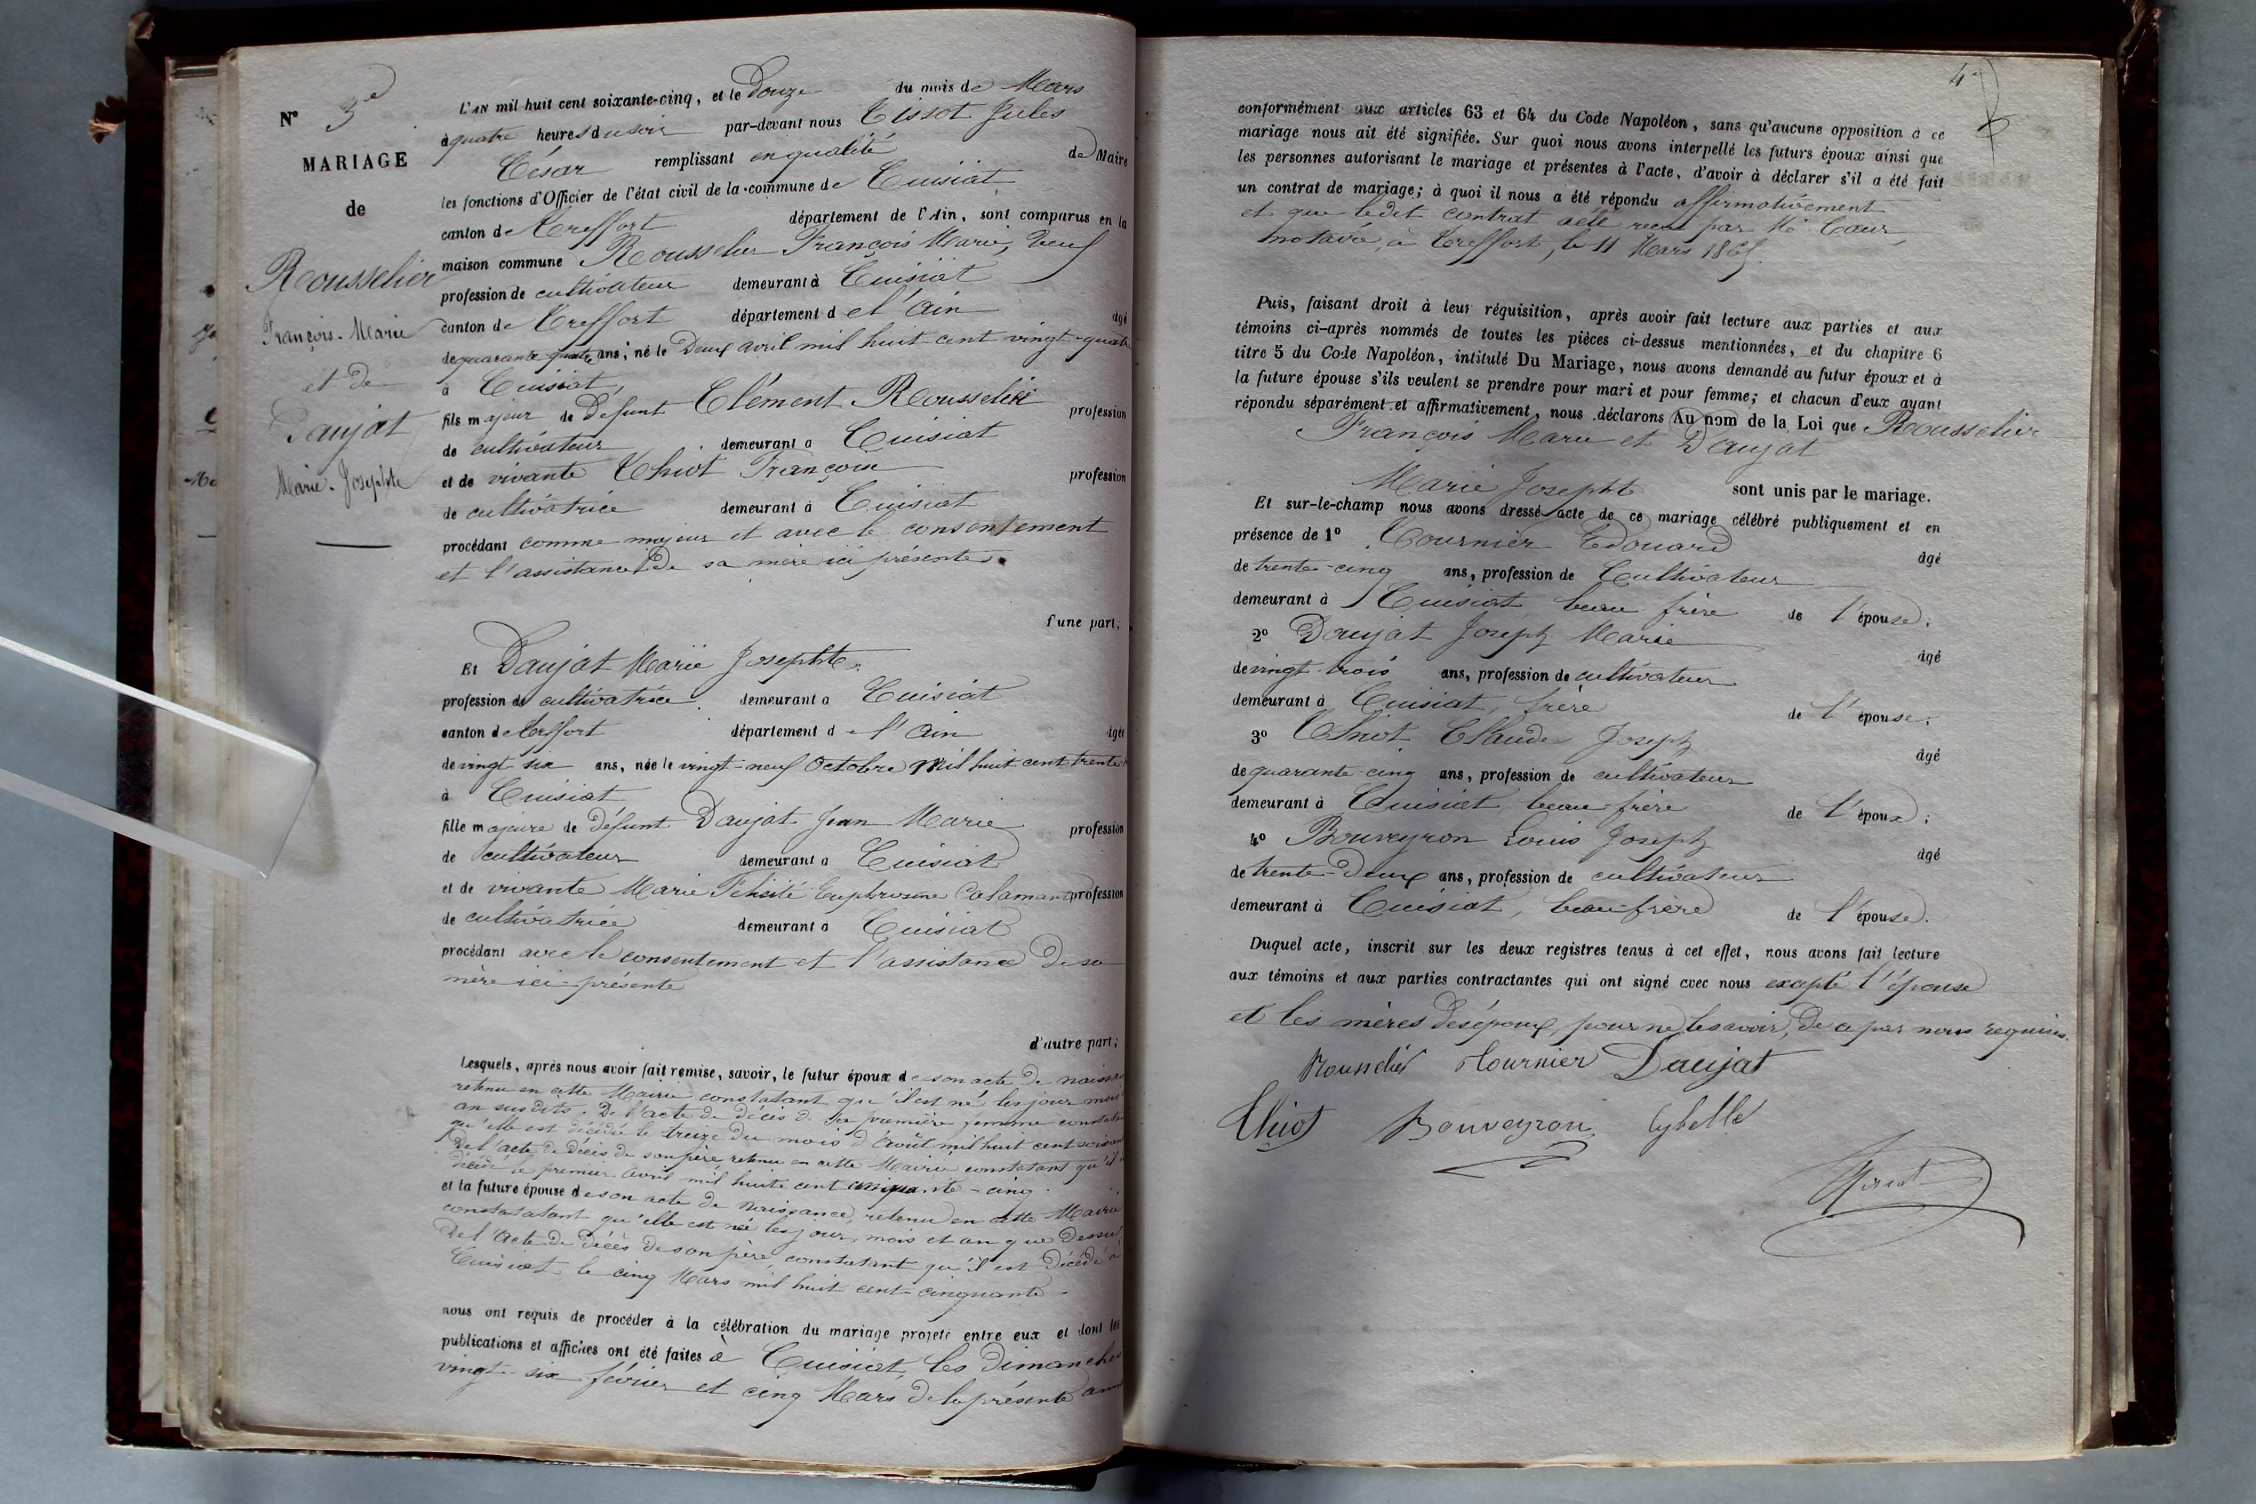 N° 3e
MARIAGE
de
Rousselier
François-Marie
et de
Daujat
Marie-Josephte
L'AN mil huit cent soixante-cinq, et le Douze du mois de Mars
à quatre heures du soir par-devant nous Tissot Jules
César remplissant en qualité de Maire
les fonctions d'Officier de l'état civil de la commune de Cuisiat
canton de Treffort département de l'Ain, sont comparus en la
maison commune Rousselier François Marie, Veuf
profession de cultivateur demeurant à Cuisiat
canton de Treffort département de l'Ain âgé
de quarante quatre ans, né le Deux avril mil huit cent vingt-quatre
à Cuisiat,
fils majeur de Defunt Clément Rousselier profession
de cultivateur demeurant à Cuisiat
et de vivante Thiot Françoise profession
de cultivatrice demeurant à Cuisiat
procédant comme majeur et avec le consentement
et l'assistance De sa mère ici présente.
d'une part;
Et Daujat Marie Josephte.
profession de cultivatrice demeurant à Cuisiat
canton de Treffort département de l'Ain âgée
de vingt six ans, née le vingt-neuf Octobre mil huit cent trente
à Cuisiat
fille majeure de Défunt Daujat Jean Marie profession
de cultivateur demeurant à Cuisiat
et de vivante Marie Félicité Euphrosine Calamard profession
de cultivatrice demeurant à Cuisiat
procédant avec le consentement et l'assistance De sa
mère ici présente
d'autre part;
Lesquels, après nous avoir fait remise, savoir, le futur époux de son acte De
retenu en cette Mairie constatant qu'il est né les jour mois
an susdits, De l'acte de décès de sa première femme
qu'elle est décédée le treize Du mois d'Août mil huit cent
De l'acte De Décès De son père, retenu en cette Mairie constatant qu'il
Décédé le premier Avril mil huite cent cinquante-cinq.
et la future épouse de son acte De Naissance, retenu en cette Mairie
constatatant qu'elle est née les jour, mois et an que Dessus
De l'acte De Décès De son père, constatant qu'il est Décédé à
Cuisiat, le cinq Mars mil huit cent cinquante.
nous ont requis de procéder à la célébration du mariage projeté entre eux et dont les
publications et affiches ont été faites à Cuisiat, les Dimanches
vingt-six février et cinq Mars De la présente
4e
conformément aux articles 63 et 64 du Code Napoléon, sans qu'aucune opposition à ce
mariage nous ait été signifiée. Sur quoi nous avons interpellé les futurs époux ainsi que
les personnes autorisant le mariage et présentes à l'acte, d'avoir à déclarer s'il a été fait
un contrat de mariage; à quoi il nous a été répondu affirmativement
et que ledit contrat a été recu par Me Cœur,
notaire, à Treffort, le 11 Mars 1865.
Puis, faisant droit à leur réquisition, après avoir fait lecture aux parties et aux
témoins ci-après nommés de toutes les pièces ci-dessus mentionnées, et du chapitre 6
titre 5 du Code Napoléon, intitulé Du Mariage, nous avons demandé au futur époux et à
la future épouse s'ils veulent se prendre pour mari et pour femme; et chacun d'eux ayant
répondu séparément et affirmativement, nous déclarons Au nom de la Loi que Rousselier
François Marie et Daujat
Marie Josephte sont unis par le mariage.
Et sur-le-champ nous avons dressé acte de ce mariage célébré publiquement et en
présence de 1° Tournier Edouard âgé
de trente-cinq ans, profession de Cultivateur
demeurant à Cuisiat beau frère de l'épouse;
2° Daujat Joseph Marie âgé
de vingt-trois ans, profession de cultivateur
demeurant à Cuisiat, frère de l'épouse;
3° Thiot Claude Joseph âgé
de quarante-cinq ans, profession de cultivateur
demeurant à Cuisiat beau-frère de l'époux;
4° Bouveyron Louis Joseph âgé
de trente-Deux ans, profession de cultivateur
demeurant à Cuisiat, beau-frère de l'épouse.
Duquel acte, inscrit sur les deux registres tenus à cet effet, nous avons fait lecture
aux témoins et aux parties contractantes qui ont signé avec nous excepté l'épouse
et les mères Des époux, pour ne le savoir, De ce par nous requises.
Rousselier Tournier Daujat
Thiot Bouveyron